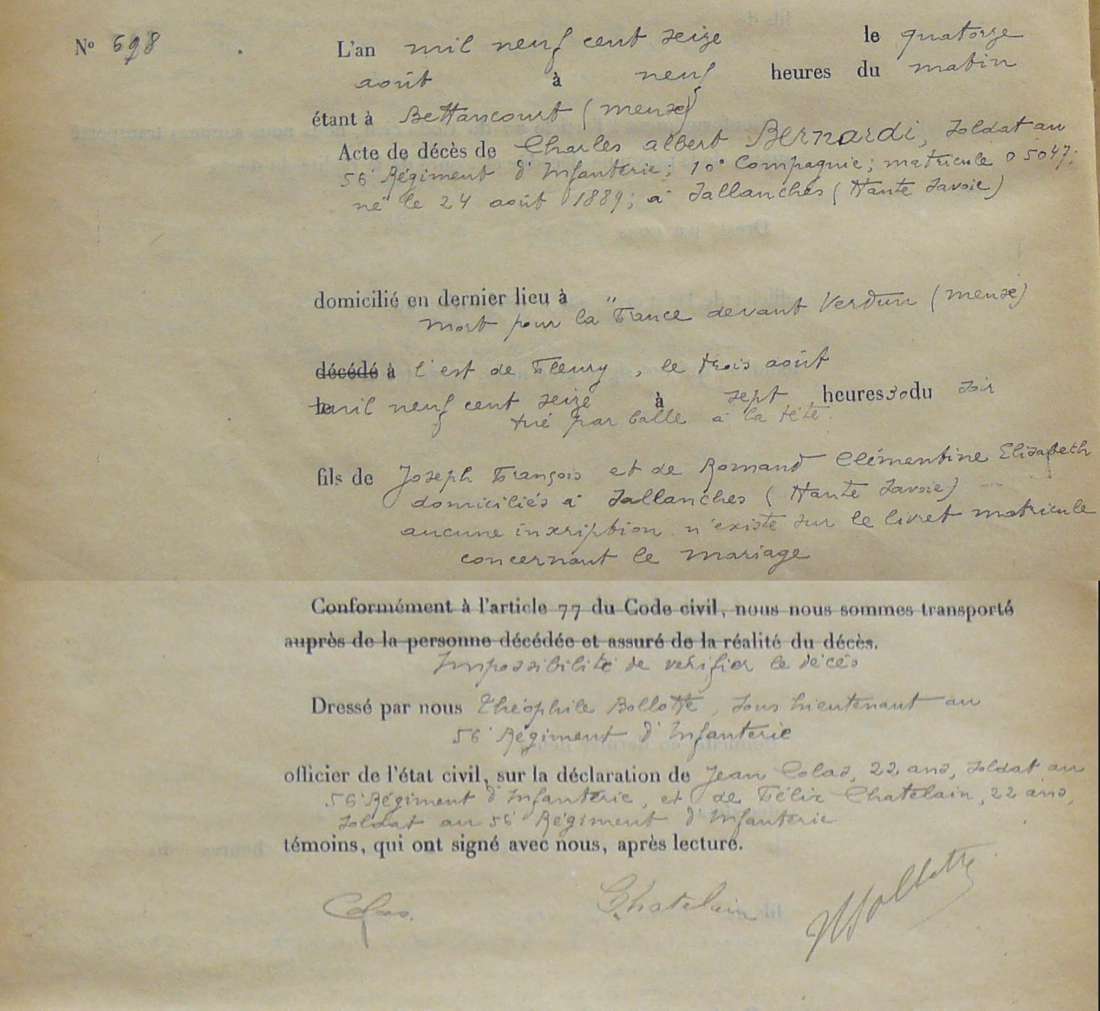 N° 698
L'an mil neuf cent seize le quatorze
août à neuf heures du matin
étant à Bettancourt (meuse)
Acte de décès de Charles albert Bernardi, Soldat au
56e Régiment d'Infanterie; 10e Compagnie; matricule 05047;
né le 24 août 1889; à Sallanches (Haute Savoie)
domicilié en dernier lieu à "
mort pour la France devant Verdun (meuse)
décédé à l'est de Fleury, le trois août
le mil neuf cent seize à sept heures 30 du soir
tué par balle à la tête
fils de Joseph François et de Romand Clémentine Elisabeth
domiciliés à Sallanches (Haute Savoie)
aucune inscription n'existe sur le livret matricule
concernant le mariage
Conformément à l'article 77 du Code civil, nous nous sommes transporté
auprès de la personne décédée et assuré de la réalité du décès.
Impossibilité de vérifier le décès
Dressé par nous Théophile Bollotte, Sous lieutenant au
56e Régiment d'Infanterie
officier de l'état civil, sur la déclaration de Jean Colas, 22 ans, Soldat au
56e Régiment d'Infanterie, et de Félix Chatelain, 22 ans,
Soldat au 56e Régiment d'Infanterie
témoins, qui ont signé avec nous, après lecture.
Colas. Chatelain Bollotte